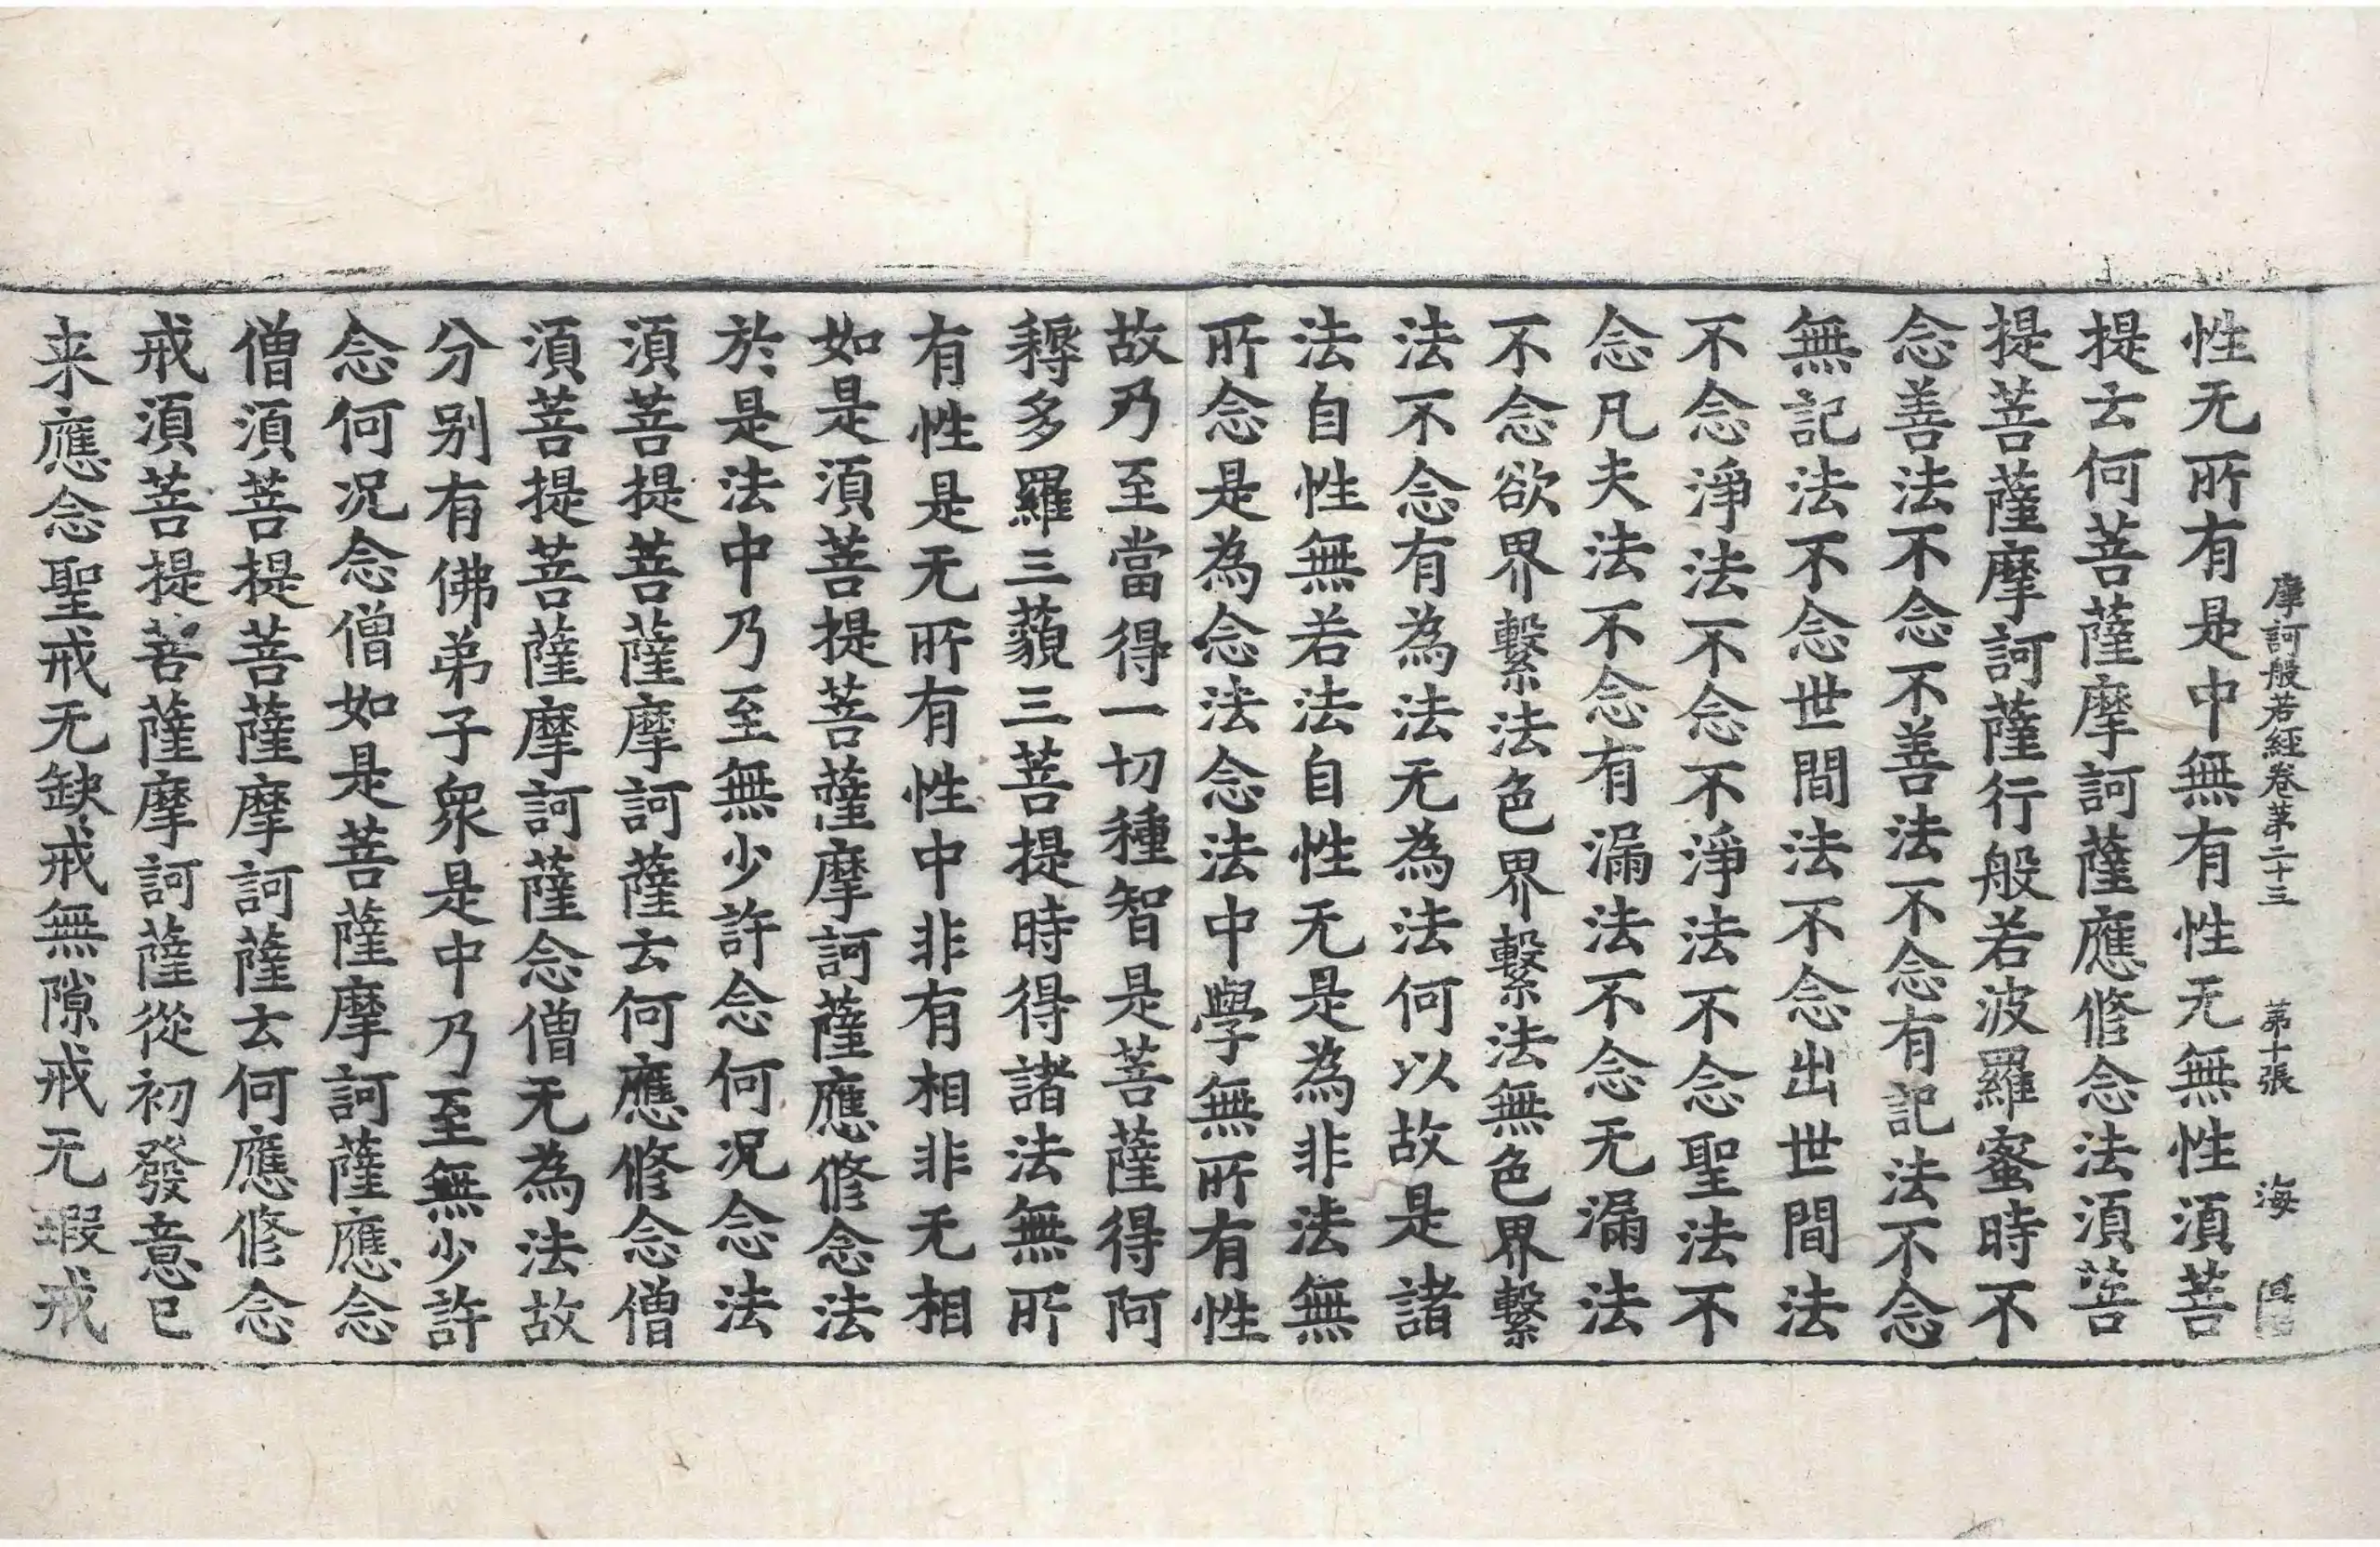 摩訶般若經卷第二十三 第十張 海
性无所有是中無有性无無性湏菩
提云何菩薩摩訶薩應修念法湏菩
提菩薩摩訶薩行般若波羅蜜時不
念善法不念不善法不念有記法不念
無記法不念世間法不念出世間法
不念淨法不念不淨法不念聖法不
念凡夫法不念有漏法不念无漏法
不念欲界繫法色界繫法無色界繫
法不念有為法无為法何以故是諸
法自性無若法自性无是為非法無
所念是為念法念法中學無所有性
故乃至當得一切種智是菩薩得阿
耨多羅三藐三菩提時得諸法無所
有性是无所有性中非有相非无相
如是湏菩提菩薩摩訶薩應修念法
於是法中乃至無少許念何况念法
湏菩提菩薩摩訶薩云何應修念僧
湏菩提菩薩摩訶薩念僧无為法故
分别有佛弟子衆是中乃至無少許
念何况念僧如是菩薩摩訶薩應念
僧湏菩提菩薩摩訶薩云何應修念
戒湏菩提菩薩摩訶薩從初發意已
来應念聖戒无缺戒無隙戒无瑕戒